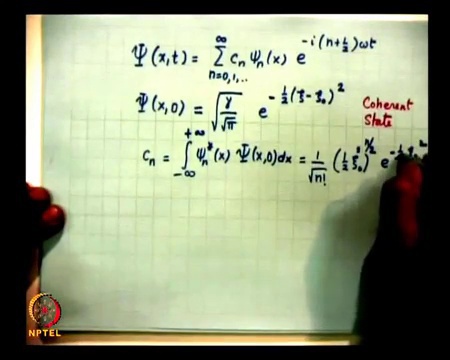 Ψ(x,t) = ∑_{n=0,1,..}^{∞} c_n ψ_n(x) e^{-i(n+1/2)ωt}
Ψ(x,0) = √(γ/√π) e^{-1/2(ξ-ξ_0)^2}
Coherent State
c_n = ∫_{-∞}^{+∞} ψ_n^*(x) Ψ(x,0)dx = 1/√n! (1/2 ξ_0^2)^{n/2} e
NPTEL